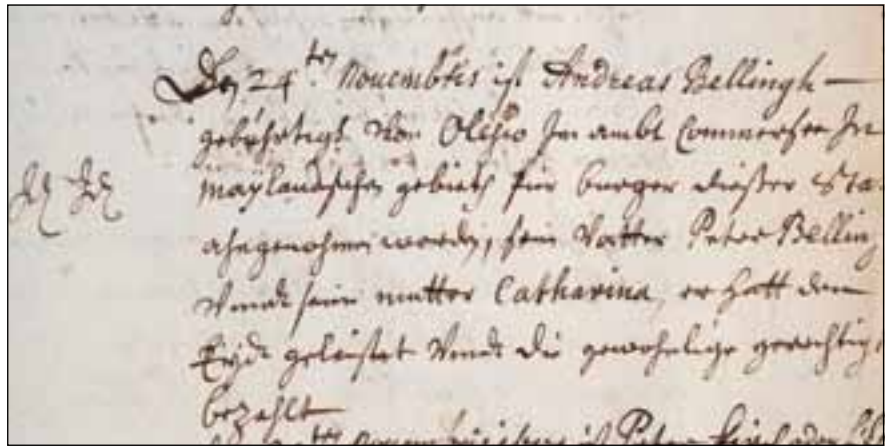 Den 24ten Nouembris ist Andreas Bellingh
gebührtigh Von Olesio Jm ambt Commersee Jn
Maylandischen gebieth für burger dießer Sta
ahngenohmen worden, sein Vatter Peter Belling
Vnndt seine mutter Catharina, er hatt den
Eydt geleistet Vnndt die gewohnlige gerechtig
bezahlt
Nouembris ist Peter